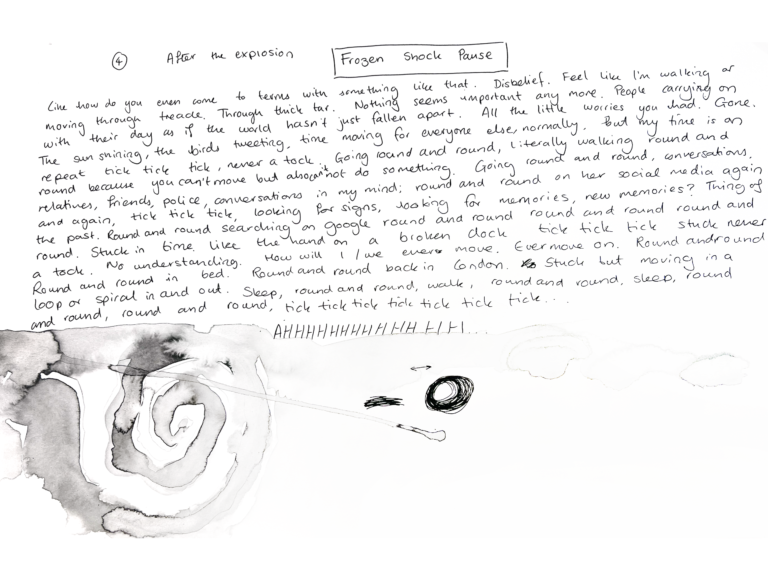 ④ After the explosion Frozen Shock Pause
Like how do you even come to terms with something like that. Disbelief. Feel like I'm walking or
moving through treacle. Through thick tar. Nothing seems important any more. People carrying on
with their day as if the world hasn't just fallen apart. All the little worries you had. Gone.
The sun shining, the birds tweeting, time moving for everyone else, normally. But my time is on
repeat tick tick tick, never a tock. Going round and round, literally walking round and
round because you can't move but also cannot do something. Going round and round, conversations,
relatives, friends, police, conversations in my mind, round and round on her social media again
and again, tick tick tick, looking for signs, looking for memories, new memories? Thing of
the past. Round and round searching on google round and round round and round round and
round. Stuck in time, like the hand on a broken clock tick tick tick stuck never
a tock. No understanding. How will I/we ever move. Ever move on. Round and round
Round and round in bed. Round and round back in London. Stuck but moving in a
loop or spiral in and out. Sleep, round and round, walk, round and round, sleep, round
and round, round and round, tick tick tick tick tick tick tick...
AHHHHHHHHHHH HHH...